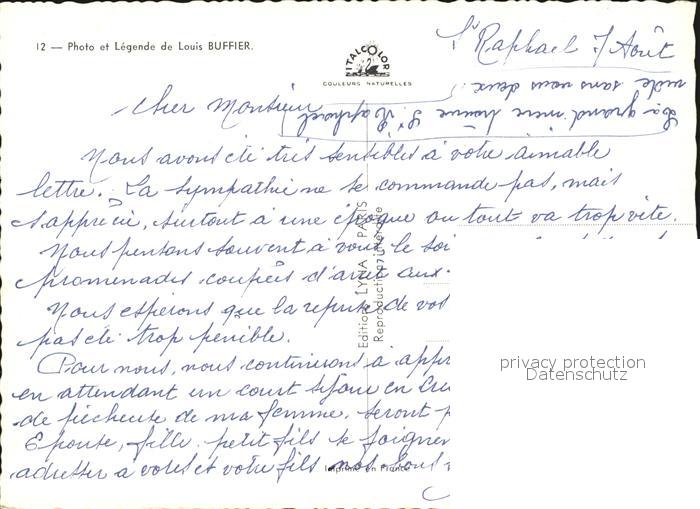 12 — Photo et Légende de Louis BUFFIER.
ITALCOLOR
COULEURS NATURELLES
St Raphael 7 Août
La grand-mère trouve St Raphael
vide sans vous deux.
Cher Monsieur
Nous avons été très sensibles à votre aimable
lettre. La sympathie ne se commande pas, mais
s'apprécie, surtout à une époque ou tout va trop vite.
Nous pensons souvent à vous le soi
promenades coupées d'arrêt aux
Nous espérons que la reprise de vos
pas été trop pénible.
Pour nous, nous continuons à appr
en attendant un court séjour en
de pêcheuse de ma femme, seront
Epouse, fille, petit fils se joignen
adresser à vous et votre fils nos bons
Editions LYNA PARIS
Reproduction interdite
Imprimé en France
privacy protection
Datenschutz